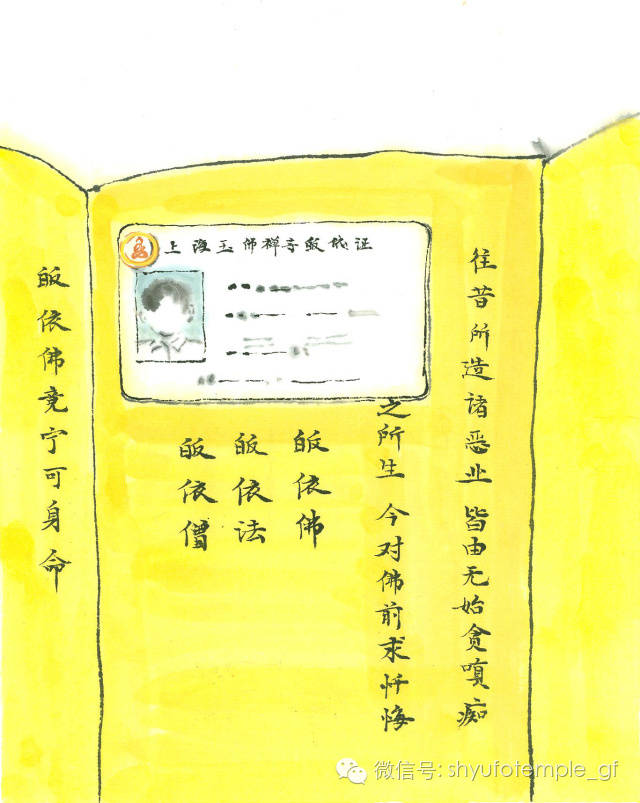 上海玉佛禅寺皈依证
往昔所造诸恶业 皆由无始贪嗔痴
之所生 今对佛前求忏悔
皈依佛
皈依法
皈依僧
皈依佛竟宁可身命
微信号: shyufotemple_gf